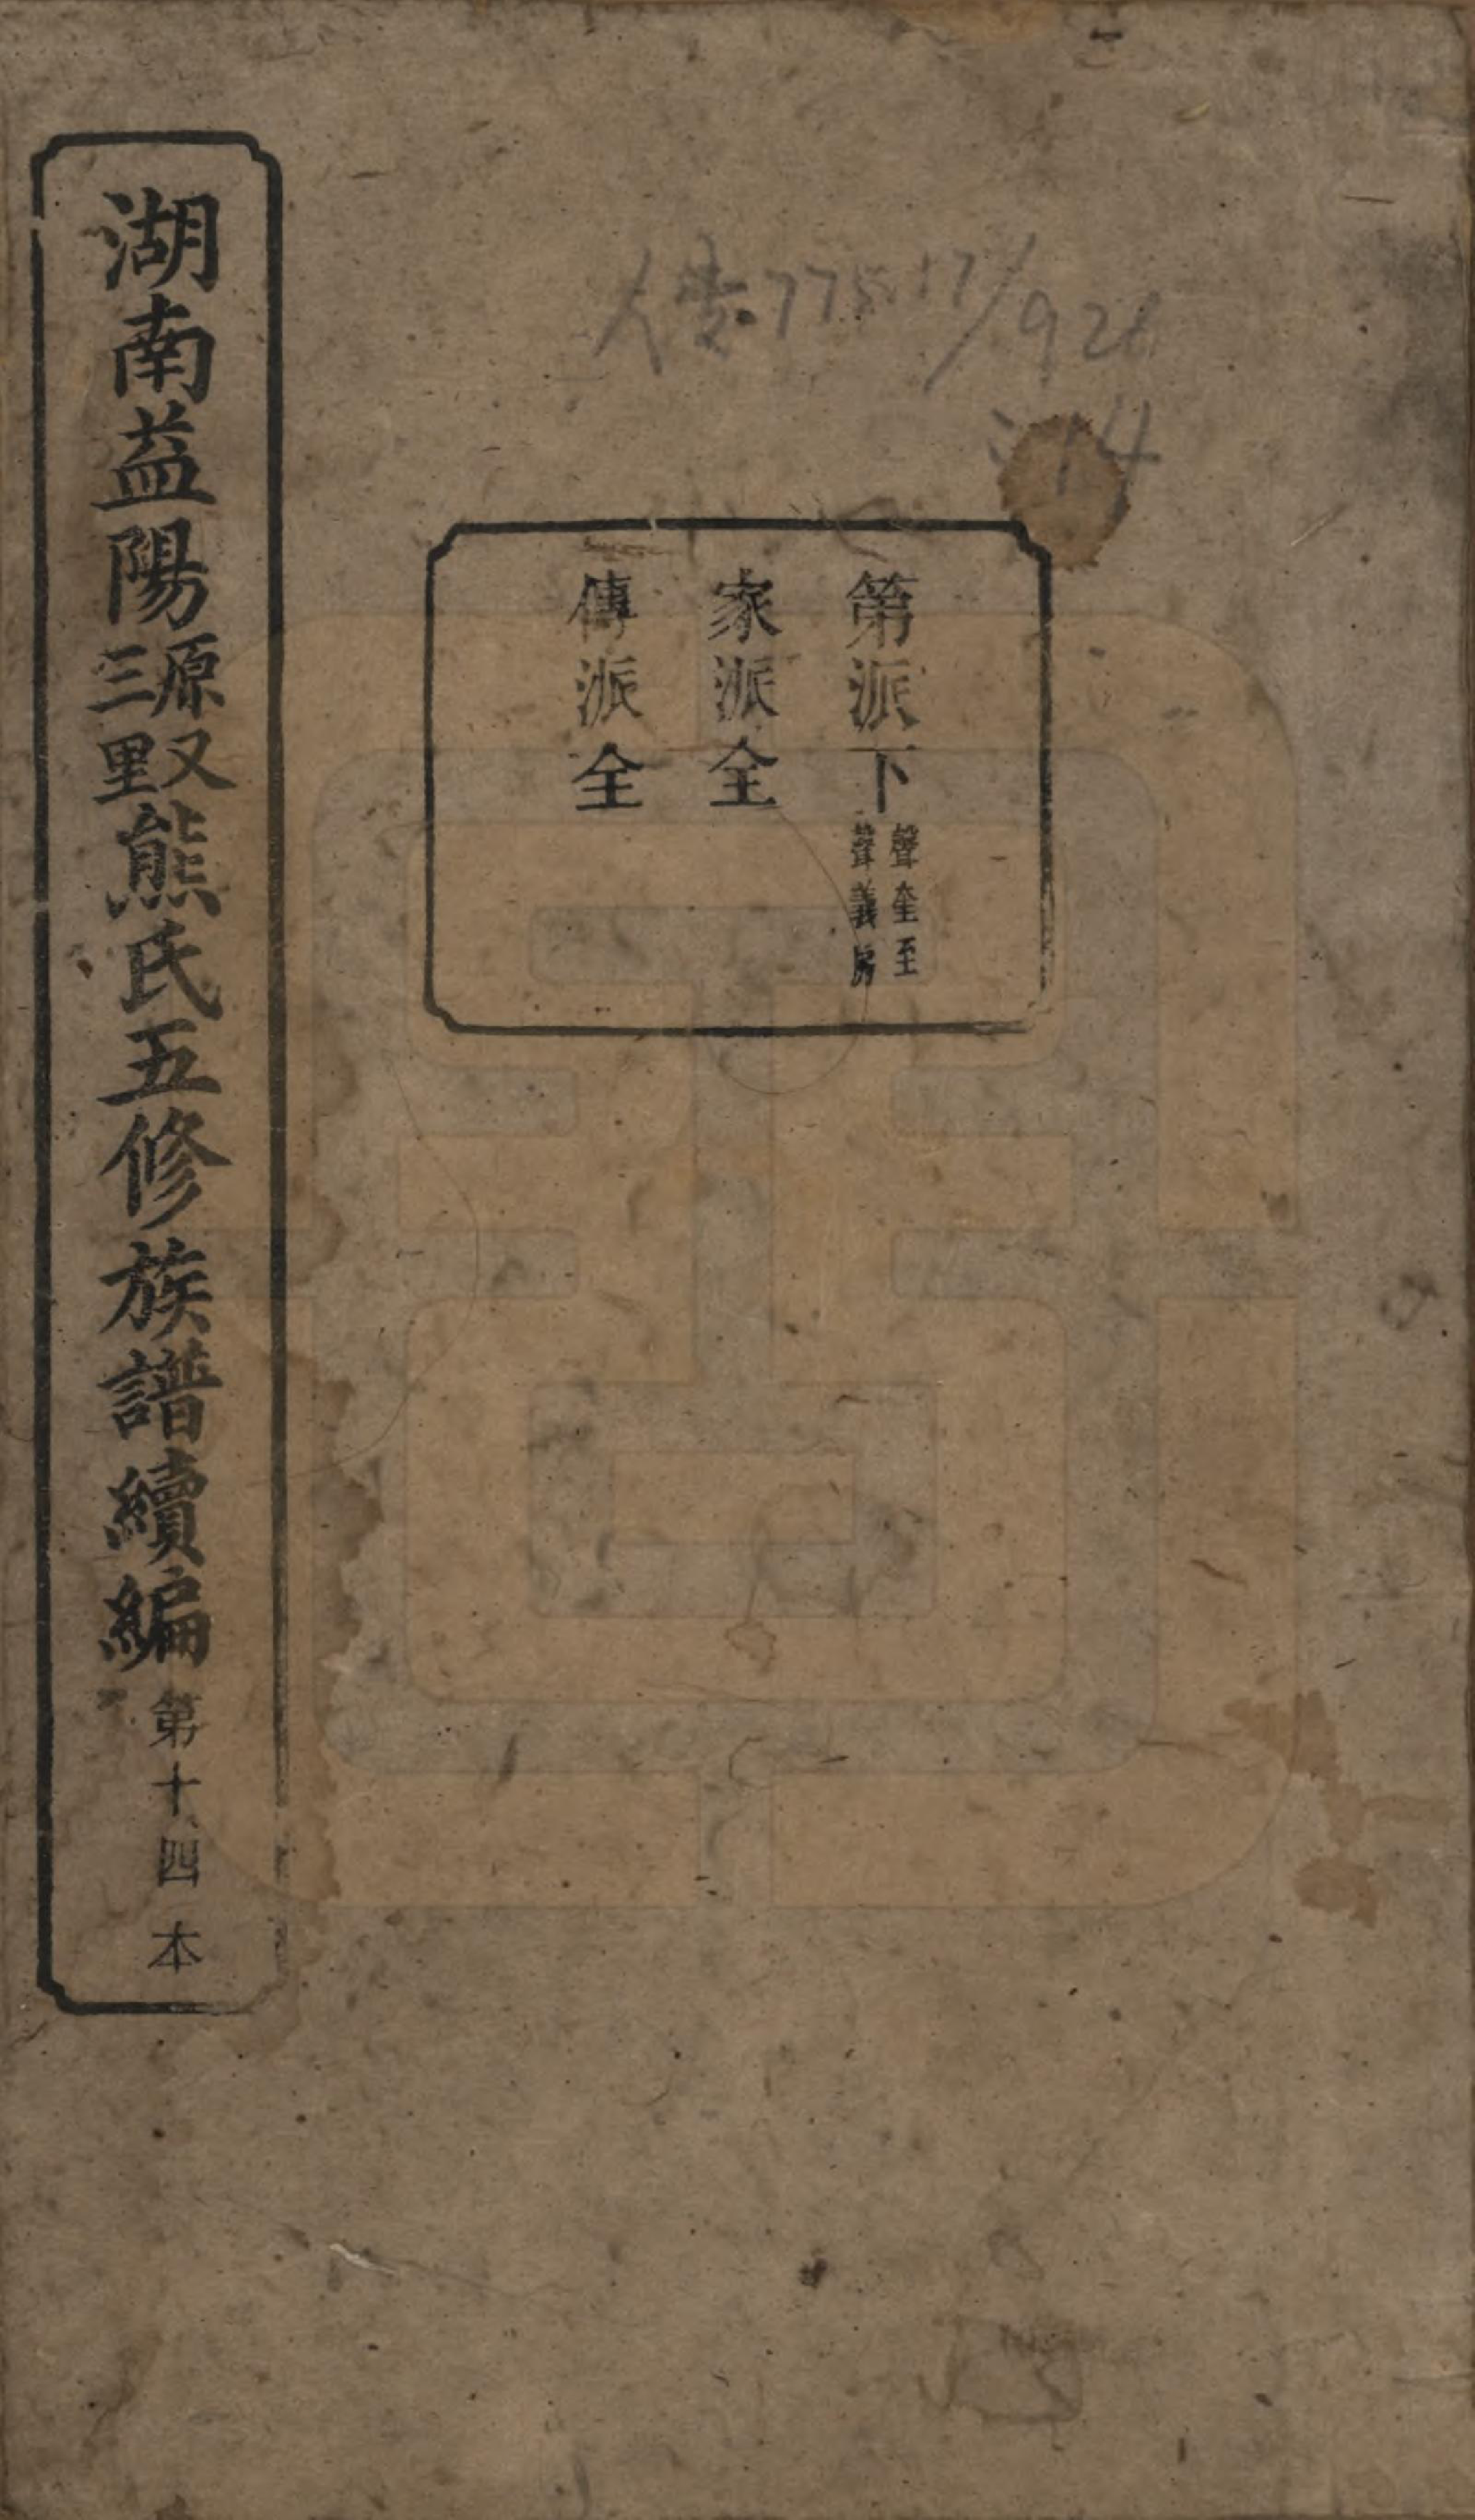 人 775.17/926
:14
第派下聲奎至聲義房
家派全
傳派全
湖南益陽源又三里熊氏五修族譜續編第十四本